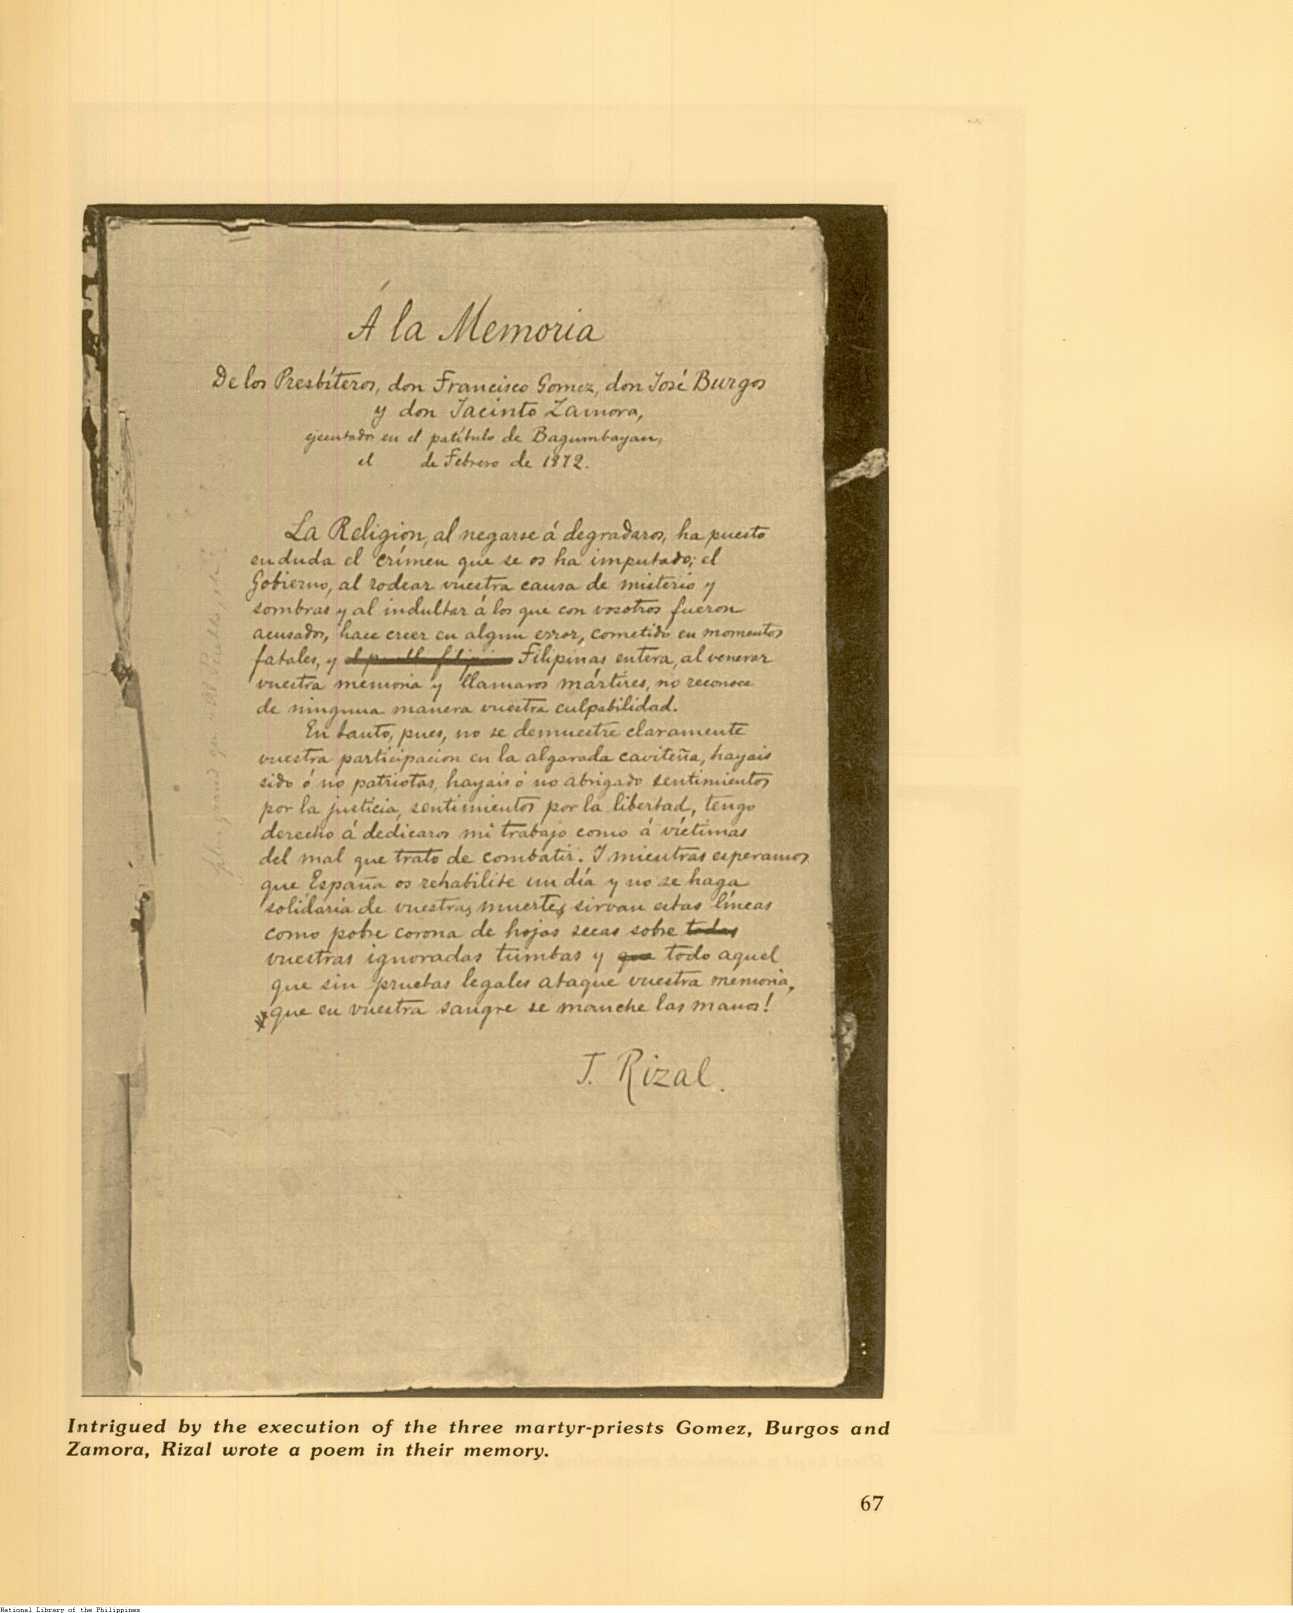 Á la Memoria
De los Presbíteros, don Francisco Gomez, don José Burgos
y don Jacinto Zamora,
ejecutados en el patíbulo de Bagumbayan,
el de Febrero de 1872.
La Religion, al negarse á degradaros, ha puesto
en duda el crímen que se os ha imputado; el
Gobierno, al rodear vuestra causa de misterio y
sombras y al indultar á los que con vosotros fueron
acusados, hace creer en algun error, cometido en momentos
fatales, y el pueblo filipino Filipinas entera, al venerar
vuestra memoria y llamaros mártires, no reconoce
de ninguna manera vuestra culpabilidad.
En tanto, pues, no se demuestre claramente
vuestra participacion en la algarada caviteña, hayais
sido ó no patriotas, hayais ó no abrigado sentimientos
por la justicia, sentimientos por la libertad, tengo
derecho á dedicaros mi trabajo como á víctimas
del mal que trato de combatir. Y mientras esperamos
que España os rehabilite un día y no se haga
solidaria de vuestras muertes, sirvan estas líneas
como pobre corona de hojas secas sobre todas
vuestras ignoradas tumbas y que todo aquel
que sin pruebas legales ataque vuestra memoria,
que en vuestra sangre se manche las manos!
J. Rizal.
Intrigued by the execution of the three martyr-priests Gomez, Burgos and
Zamora, Rizal wrote a poem in their memory.
67
National Library of the Philippines